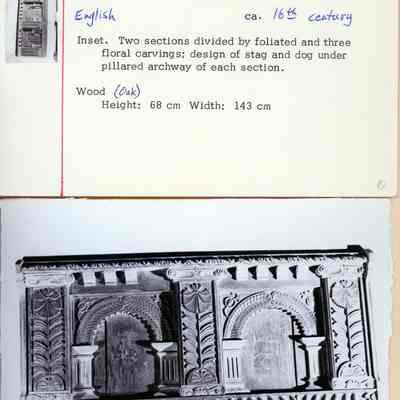 English ca. 16th century
Inset. Two sections divided by foliated and three
floral carvings; design of stag and dog under
pillared archway of each section.
Wood (Oak)
Height: 68 cm Width: 143 cm